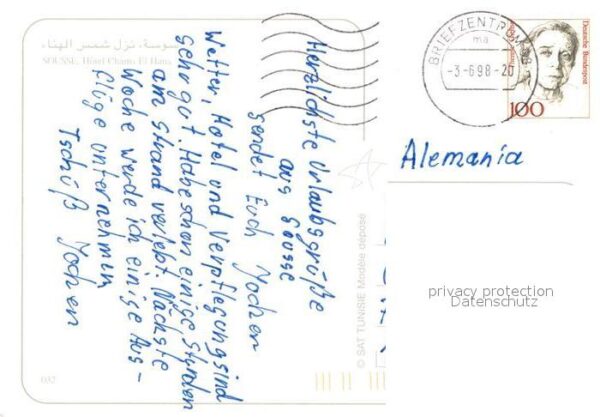 سوسة، نزل شمس الهناء
SOUSSE, Hôtel Chams El Hana
Herzlichste Urlaubsgrüße
aus Sousse
sendet Euch Jochen
Wetter, Hotel und Verpflegung sind
sehr gut. Habe schon einige Stunden
am Strand verlebt. Nächste
Woche werde ich einige Aus-
flüge unternehmen
Tschüß Jochen
© SAT TUNISIE Modèle déposé
032
BRIEFZENTRUM
ma
-3.-6.98-20
Deutsche Bundespost
100
Alemania
privacy protection
Datenschutz